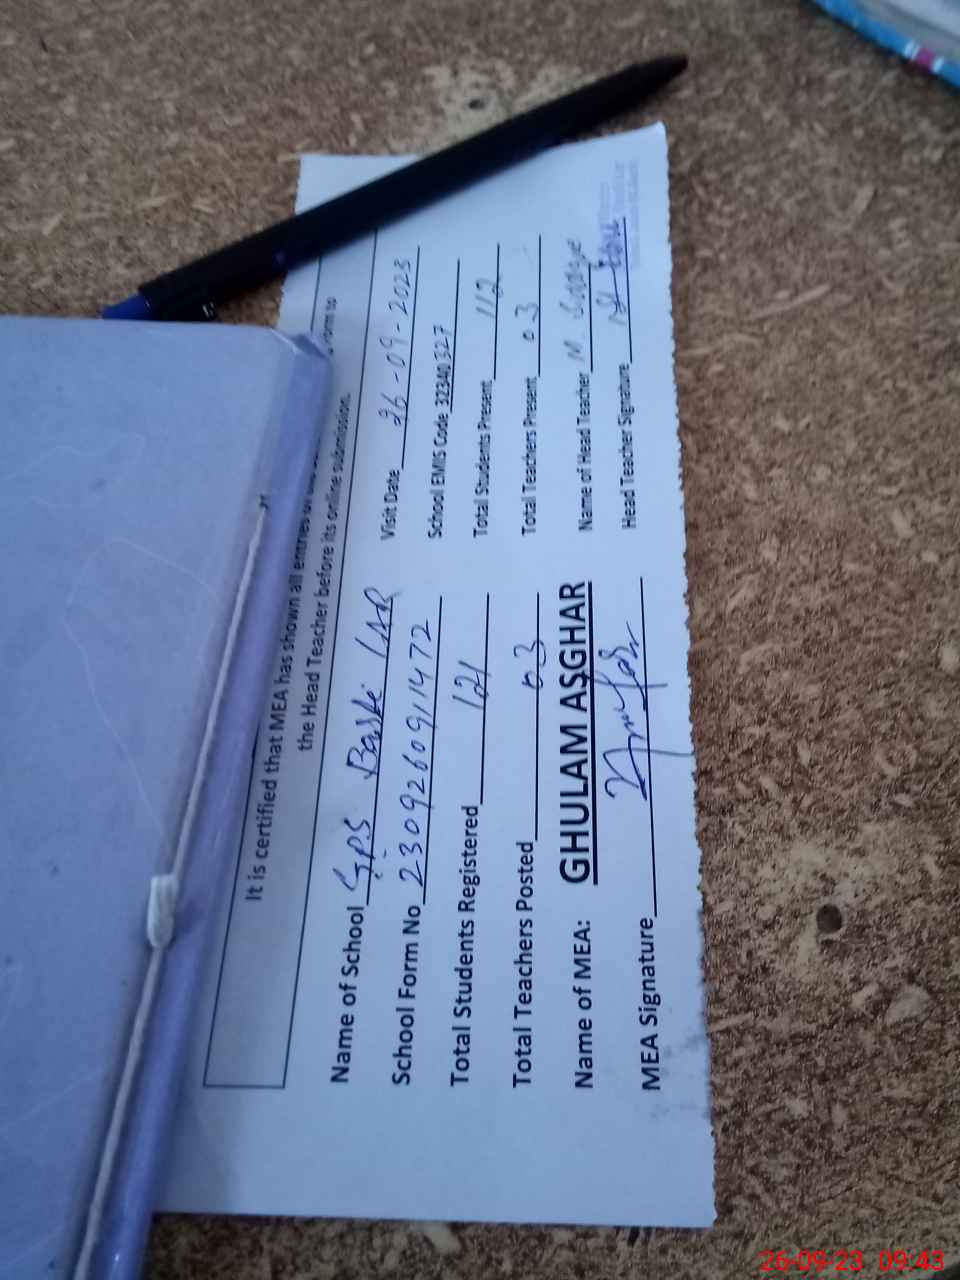 It is certified that MEA has shown all entries
the Head Teacher before its online submission.
Name of School G.P.S Basti LAR
Visit Date 26-09-2023
School Form No 23092609111472
School EMIS Code 32340327
Total Students Registered 121
Total Students Present 112
Total Teachers Posted 03
Total Teachers Present 03
Name of MEA: GHULAM ASGHAR
Name of Head Teacher M.
MEA Signature
Head Teacher Signature
26-09-23 09:43